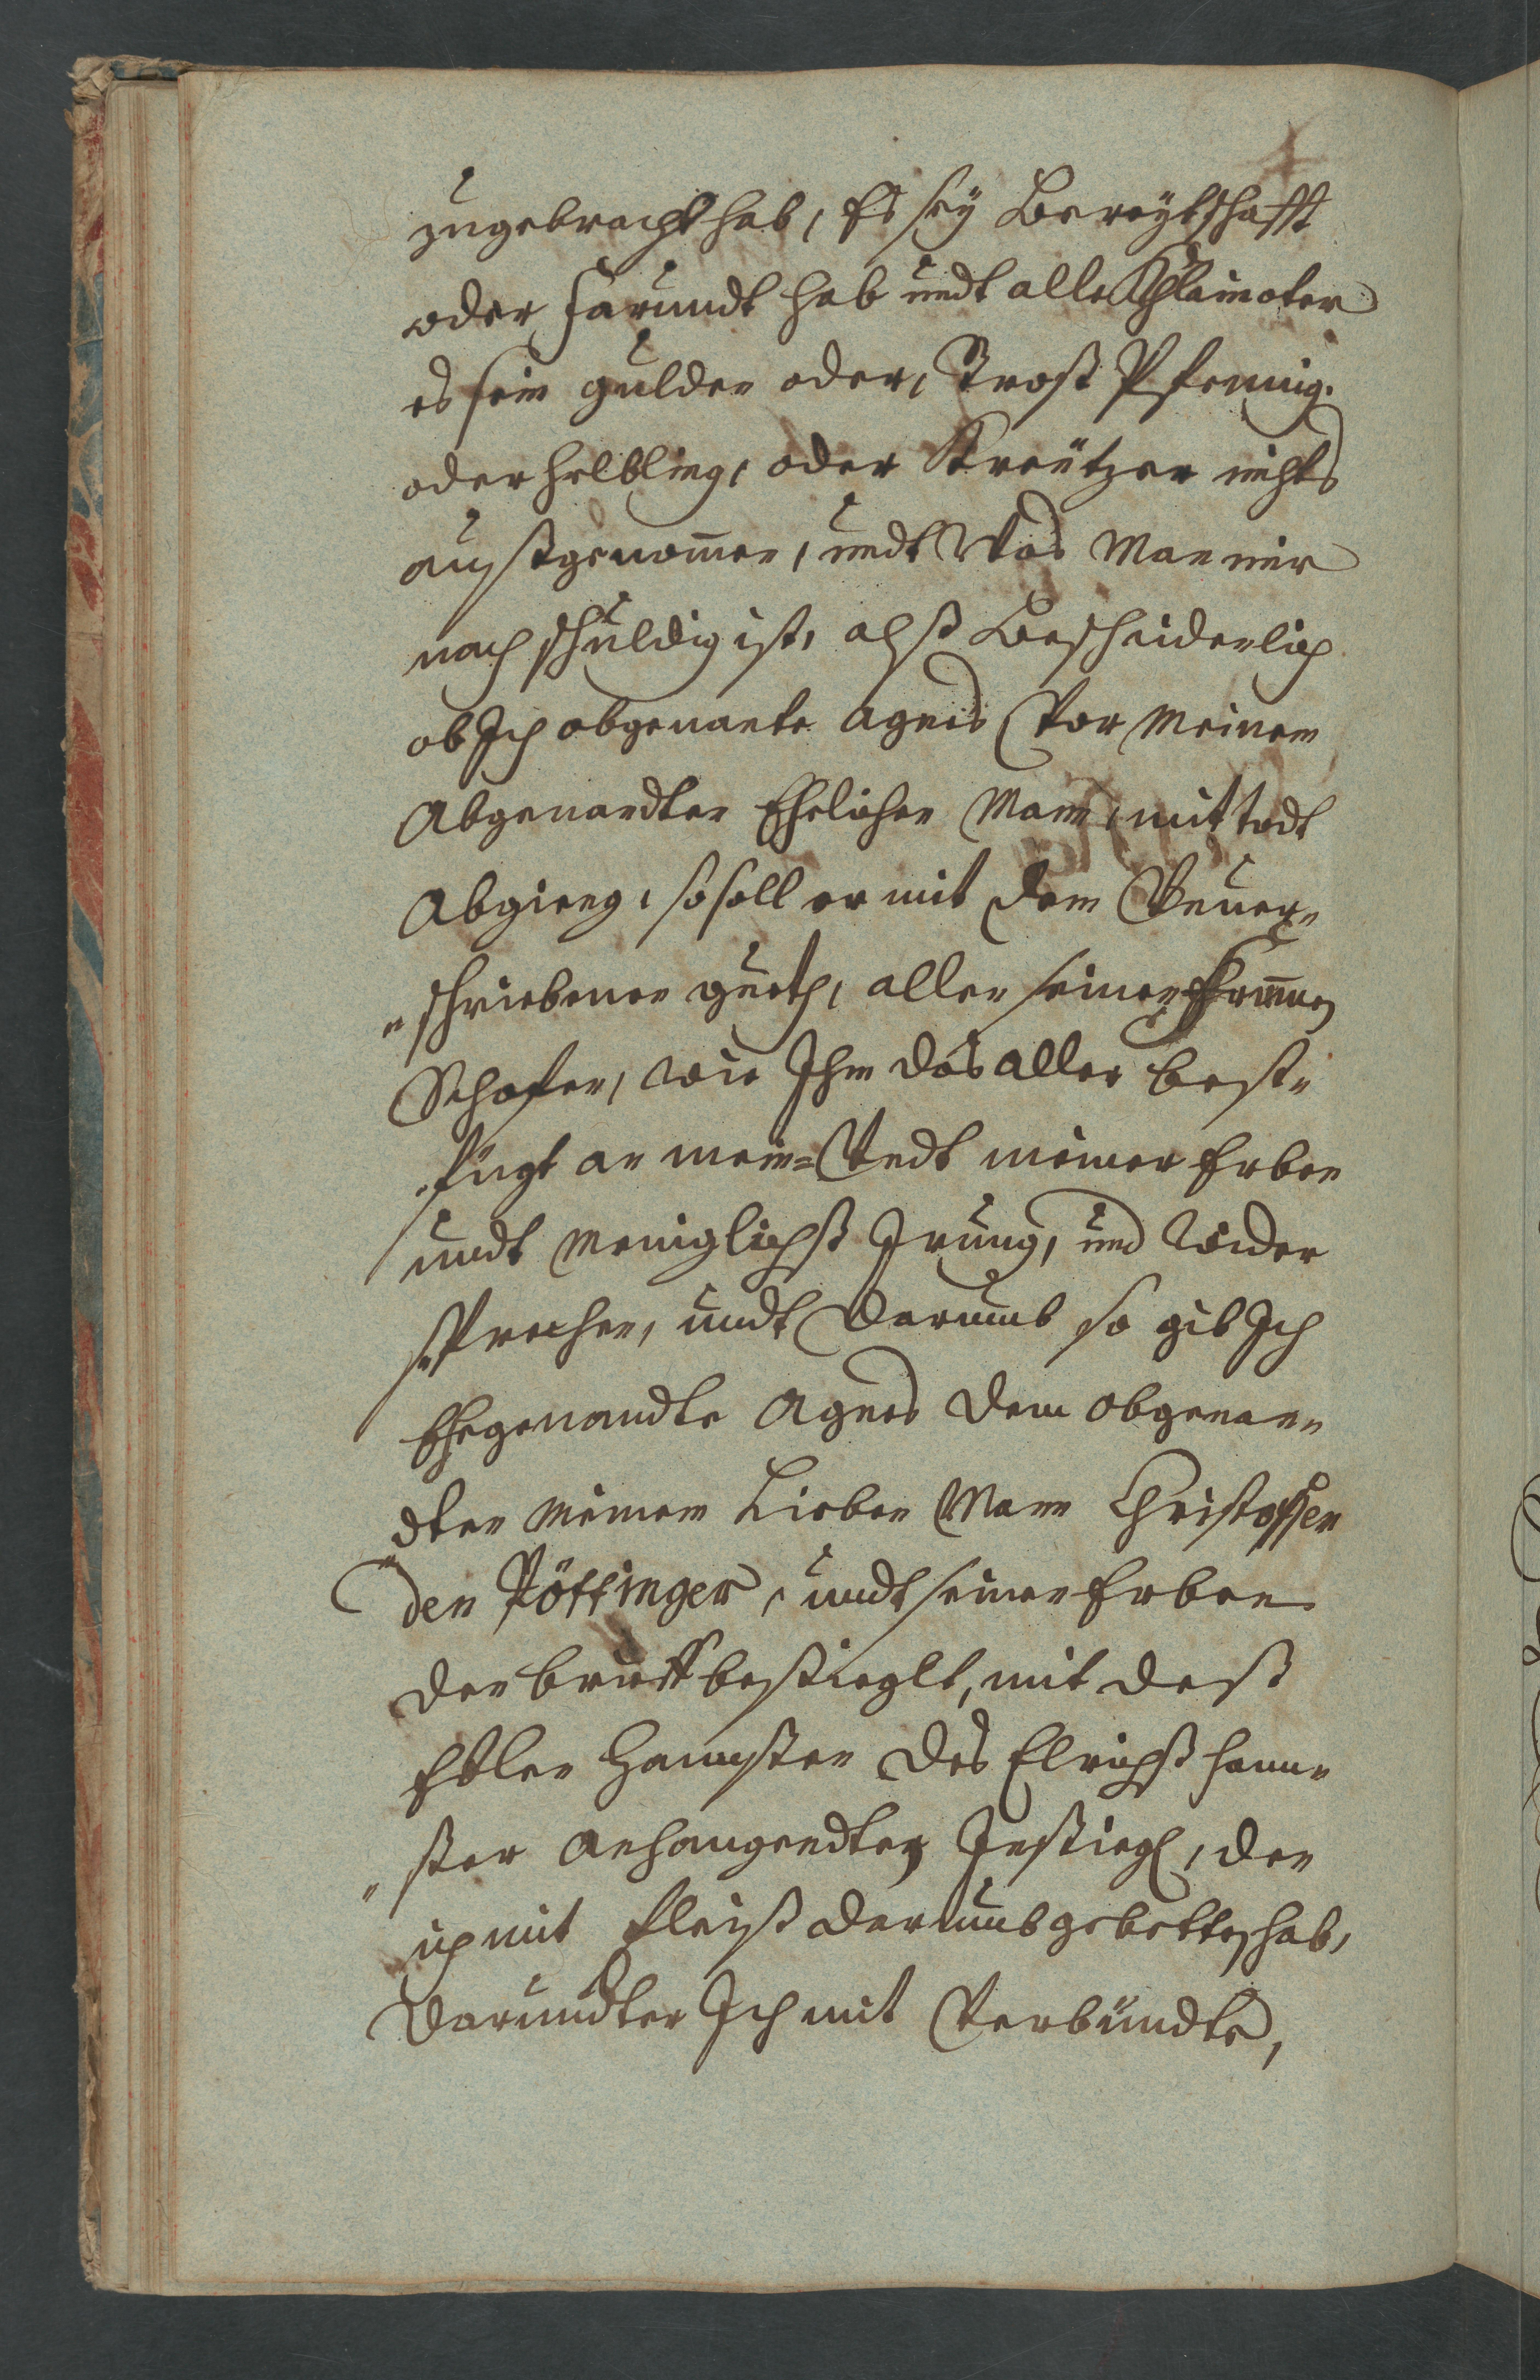 zugebracht hab, Es seÿ Bereÿtschafft
oder Farundt hab undt alle Khlainoter
es sein gulden oder, Broß Pfennig.
oder helbling, oder Kreützer nichts
außgenom̄en, undt Was Man mir
noch schuldig ist, alß Bescheidenlich
ob Ich obgenante Agnes Vor Meinem
Abgenandten Ehelichen Mann, mit todt
Abgieng, so soll er mit dem
schriebenen gueth, allen seinen frum̄en
Schafen, wie Ihm das aller best„
fügt an mein= Vndt meiner Erben
undt Meniglichß Irung, und Wider
sprechen, undt Darumb so gib Ich
Ehegenandte Agnes dem obgenan„
„dten meinem Lieben Mann Christoffen
den Pöttinger, undt seinen Erben
den brieff besiegelt, mit deß
Edlen des hann„
„ster Anhangendten Insiegl, den
ich mit fleiß darumb gebetten hab,
Darundter Ich mit Verbündte,